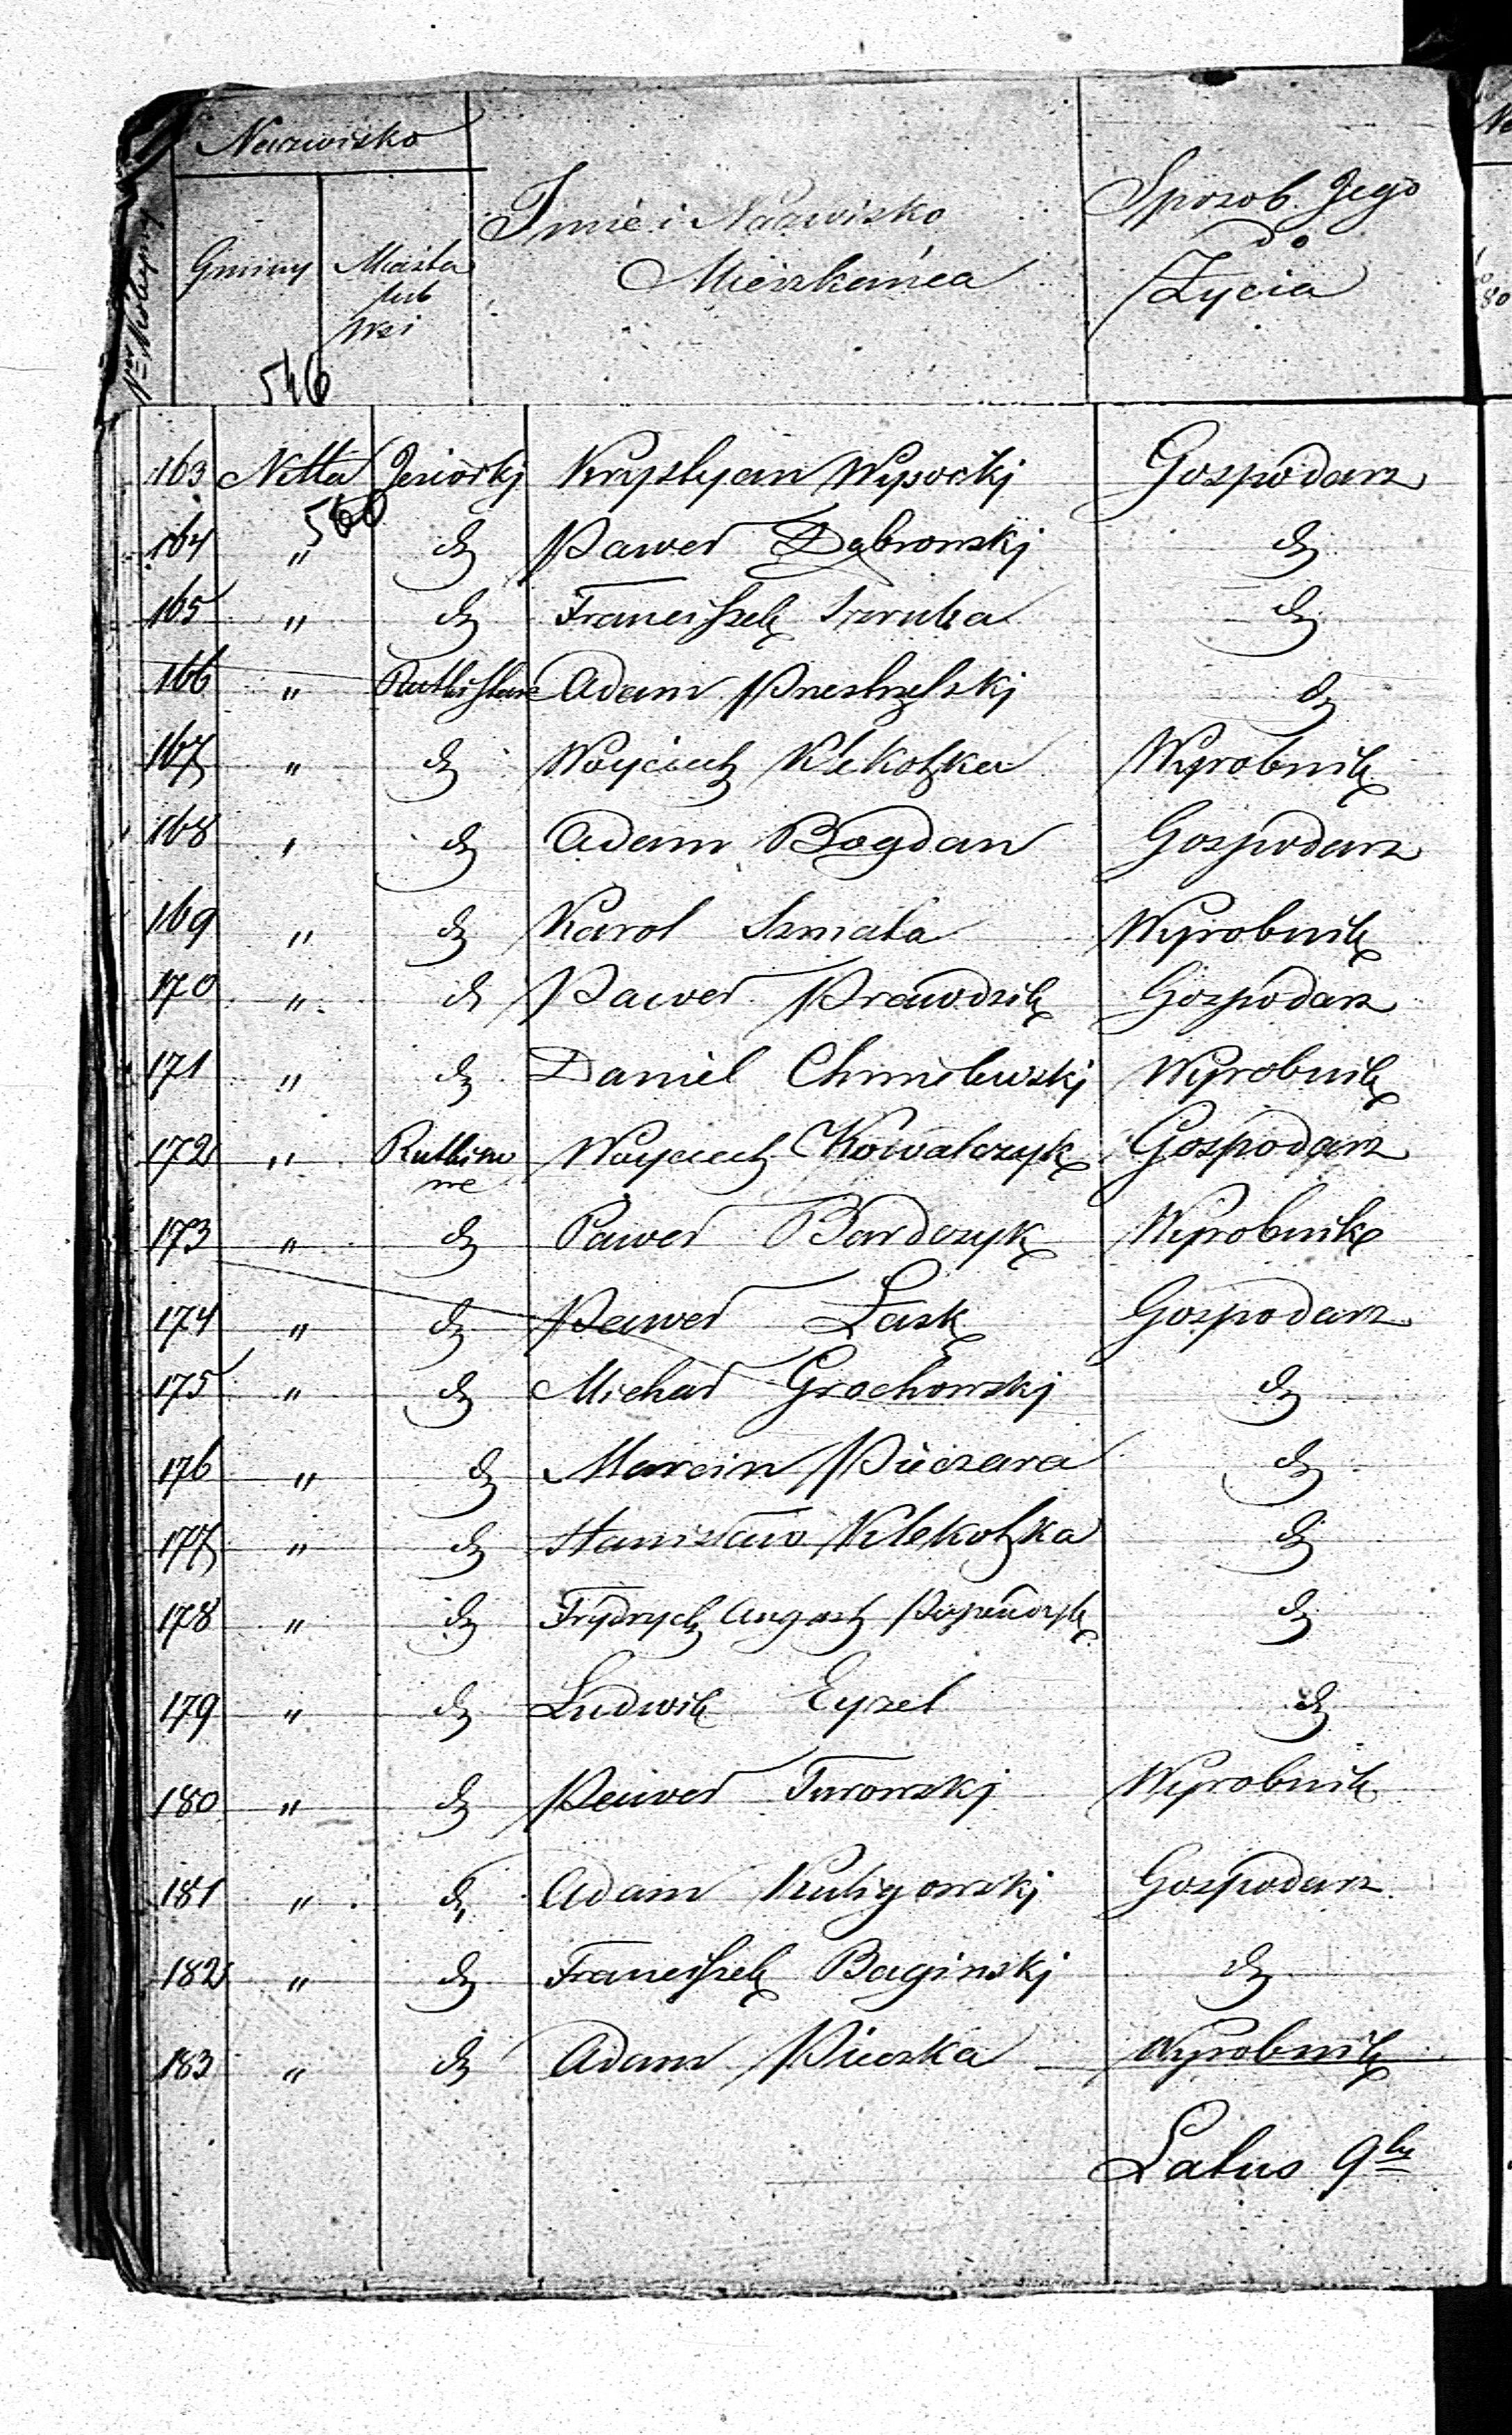 Nazwisko
Nro Kolejny
Gminy
Miasta
lub
Wsi
Imie i Nazwisko
Mieszkańca
Sposob Jego
do
Życia
546
163 Netta Jeziorkj Krystyan Wysockj Gospodarz
560
164 " dº Paweł Dąbrowskj dº
165 " dº Franciszek Szruba dº
166 " Rutki stare Adam dº
167 " dº Woyciech Klekotka Wyrobnik
168 " dº Adam Bogdan Gospodarz
169 " dº Karol Szmata Wyrobnik
170 " dº Paweł Prawdzik Gospodarz
171 " dº Daniel Chmilewskj Wyrobnik
172 " Rutki no Woyciech Kowalczyk Gospodarz
we
173 " dº Paweł Bardczyk Wyrobnik
174 " dº Paweł Lask Gospodarz
175 " dº Michał Grochowskj dº
176 " dº Marcin Pieczara dº
177 " dº Stanisław Klekotka dº
178 " dº Frydrych August dº
179 " dº Ludwik Eyzel dº
180 " dº Paweł Turowskj Wyrobnik
181 " dº Adam Kuligowskj Gospodarz
182 " dº Franciszek Baginskj dº
183 " dº Adam Wyrobnik
Latus 9ty